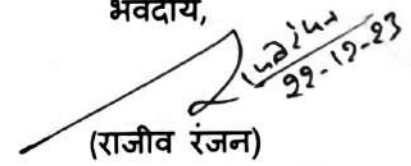 भवदीय,
22-12-23
(राजीव रंजन)